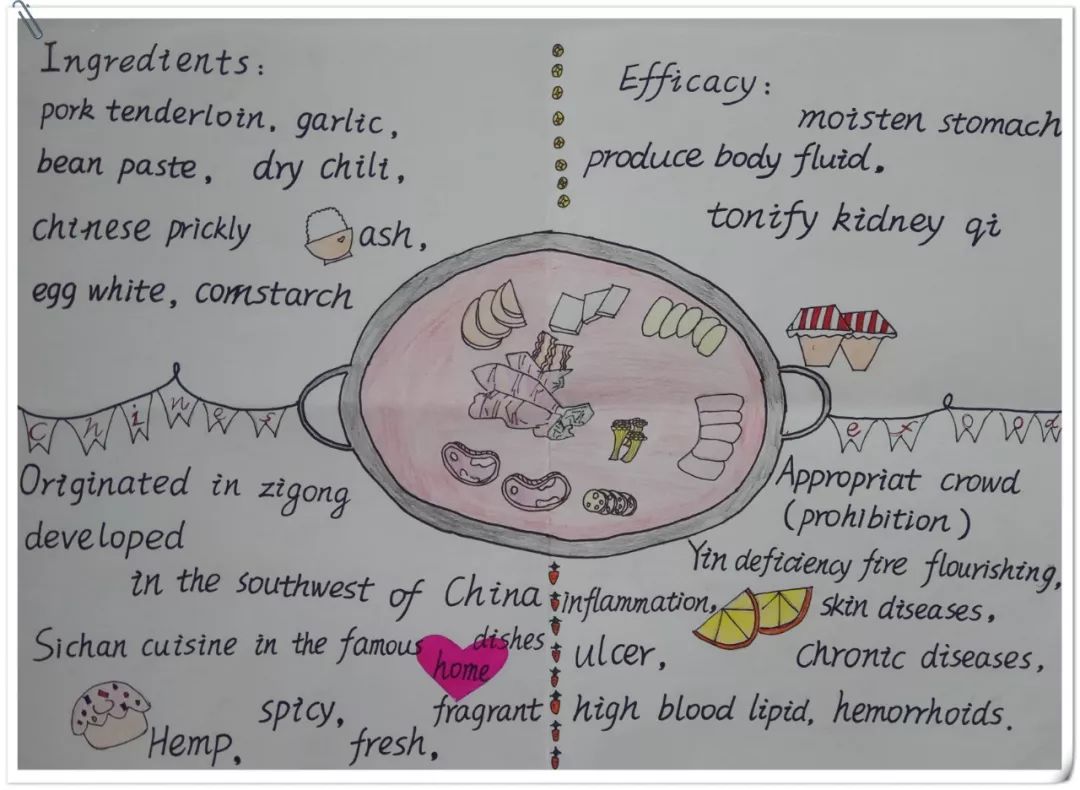 Ingredients:
pork tenderloin, garlic,
bean paste, dry chili,
chinese prickly ash,
egg white, cornstarch
Efficacy:
moisten stomach
produce body fluid,
tonify kidney qi
Chinese food
Originated in zigong
developed
in the southwest of China
Sichan cuisine in the famous dishes
home
spicy, fragrant
Hemp, fresh,
Appropriat crowd
(prohibition)
Yin deficiency fire flourishing,
inflammation, skin diseases,
ulcer, chronic diseases,
high blood lipid, hemorrhoids.